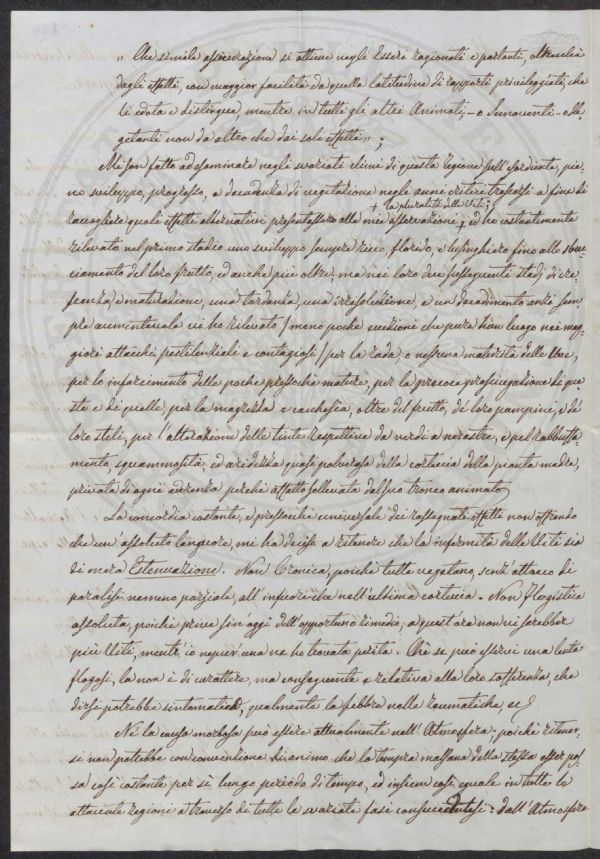 „ Che simile asseverazione si ottiene negli Esseri ragionati e parlanti, oltreche
dagli effetti, con maggior facilità da quella latitudine di rapporti privileggiati, che
li adota e distingue, mentre in tutti gli altri Animati, o Semoventi o Ve-
getanti non da altro che dai soli effetti „;
Mi son fatto ad esaminare negli svariati climi di questa regione sull'
no sviluppo, progresso, e decadenza di vegetazione negli anni critici trascorsi a fine di
la pluralità delle Viti;
raccogliere quali effetti alternativi presentassero alle mie osservazioni + ed ho costantemente
rilevato nel primo stadio uno sviluppo sempre ricco, florido, e lusinghiero fino allo sboc-
ciamento del loro frutto, ed anche più oltre; ma nei loro due susseguenti stadj di cre-
scenza, e maturazione, una tardanza, una irresoluzione, e un decadimento anzi sem-
pre aumentevole vi ho rilevato / meno poche eccezioni che pure han luogo nei mag-
giori attacchi pestilenziali e contagiosi / per la rada o nessuna maturità delle Uve,
per lo infracimento delle poche pressochè mature, per la precoce prosciugazione di que-
ste e di quelle, per la magrezza e cachessia, oltre del frutto, de' loro pampini, e de'
loro steli, per l'alterazione delle tinte respettive da verdi a nerastre, e pel rabbuffa-
mento, squammosità, ed aridezza quasi polverosa della corteccia della pianta madre,
privata di ogni aderenza perchè affatto sollevata dal suo tronco animato.
La concordia costante, e pressochè universale dei rassegnati effetti non offrendo
che un'assoluto languore, mi ha deciso a ritenere che la infermità delle Viti sia
di mera Estenuazione. Non Cronica, poichè tutte vegetano, senz'attacco di
paralisi nemeno parziale, all'infuori che nell'ultima corteccia. Non Flogistica
assoluta, poichè prive sin'oggi dell'opportuno rimedio, a quest'ora non vi sarebber
più Viti, mentr'io neppur'una ne ho trovata perita. Che se può esservi una lenta
flogosi, la non è di carattere, ma conseguente e relativa alla loro sofferenza, che
dirsi potrebbe sintomatica, egualmente la febbre nelle reumatiche,
Nè la causa morbosa può essere attualmente nell'Atmosfera; poichè ritener-
si non potrebbe con convinzione di animo che la tempra malsana della stessa esser pos-
sa così costante per sì lungo periodo di tempo, ed insiem così eguale in tutte le
attaccate regioni a traverso di tutte le svariate fasi dall'Atmosfera